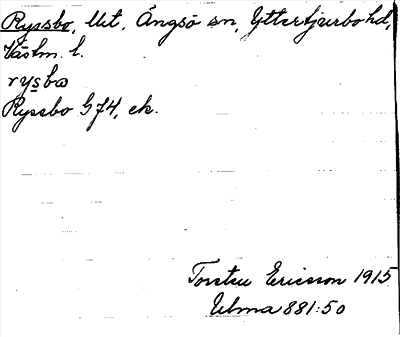 Ryssbo, Ut. Ängsö sn, Yttertjurbo hd,
Västm. l.
rysbω
Ryssbo G74, ek.
Torsten Ericsson 1915
Ulma 881:50